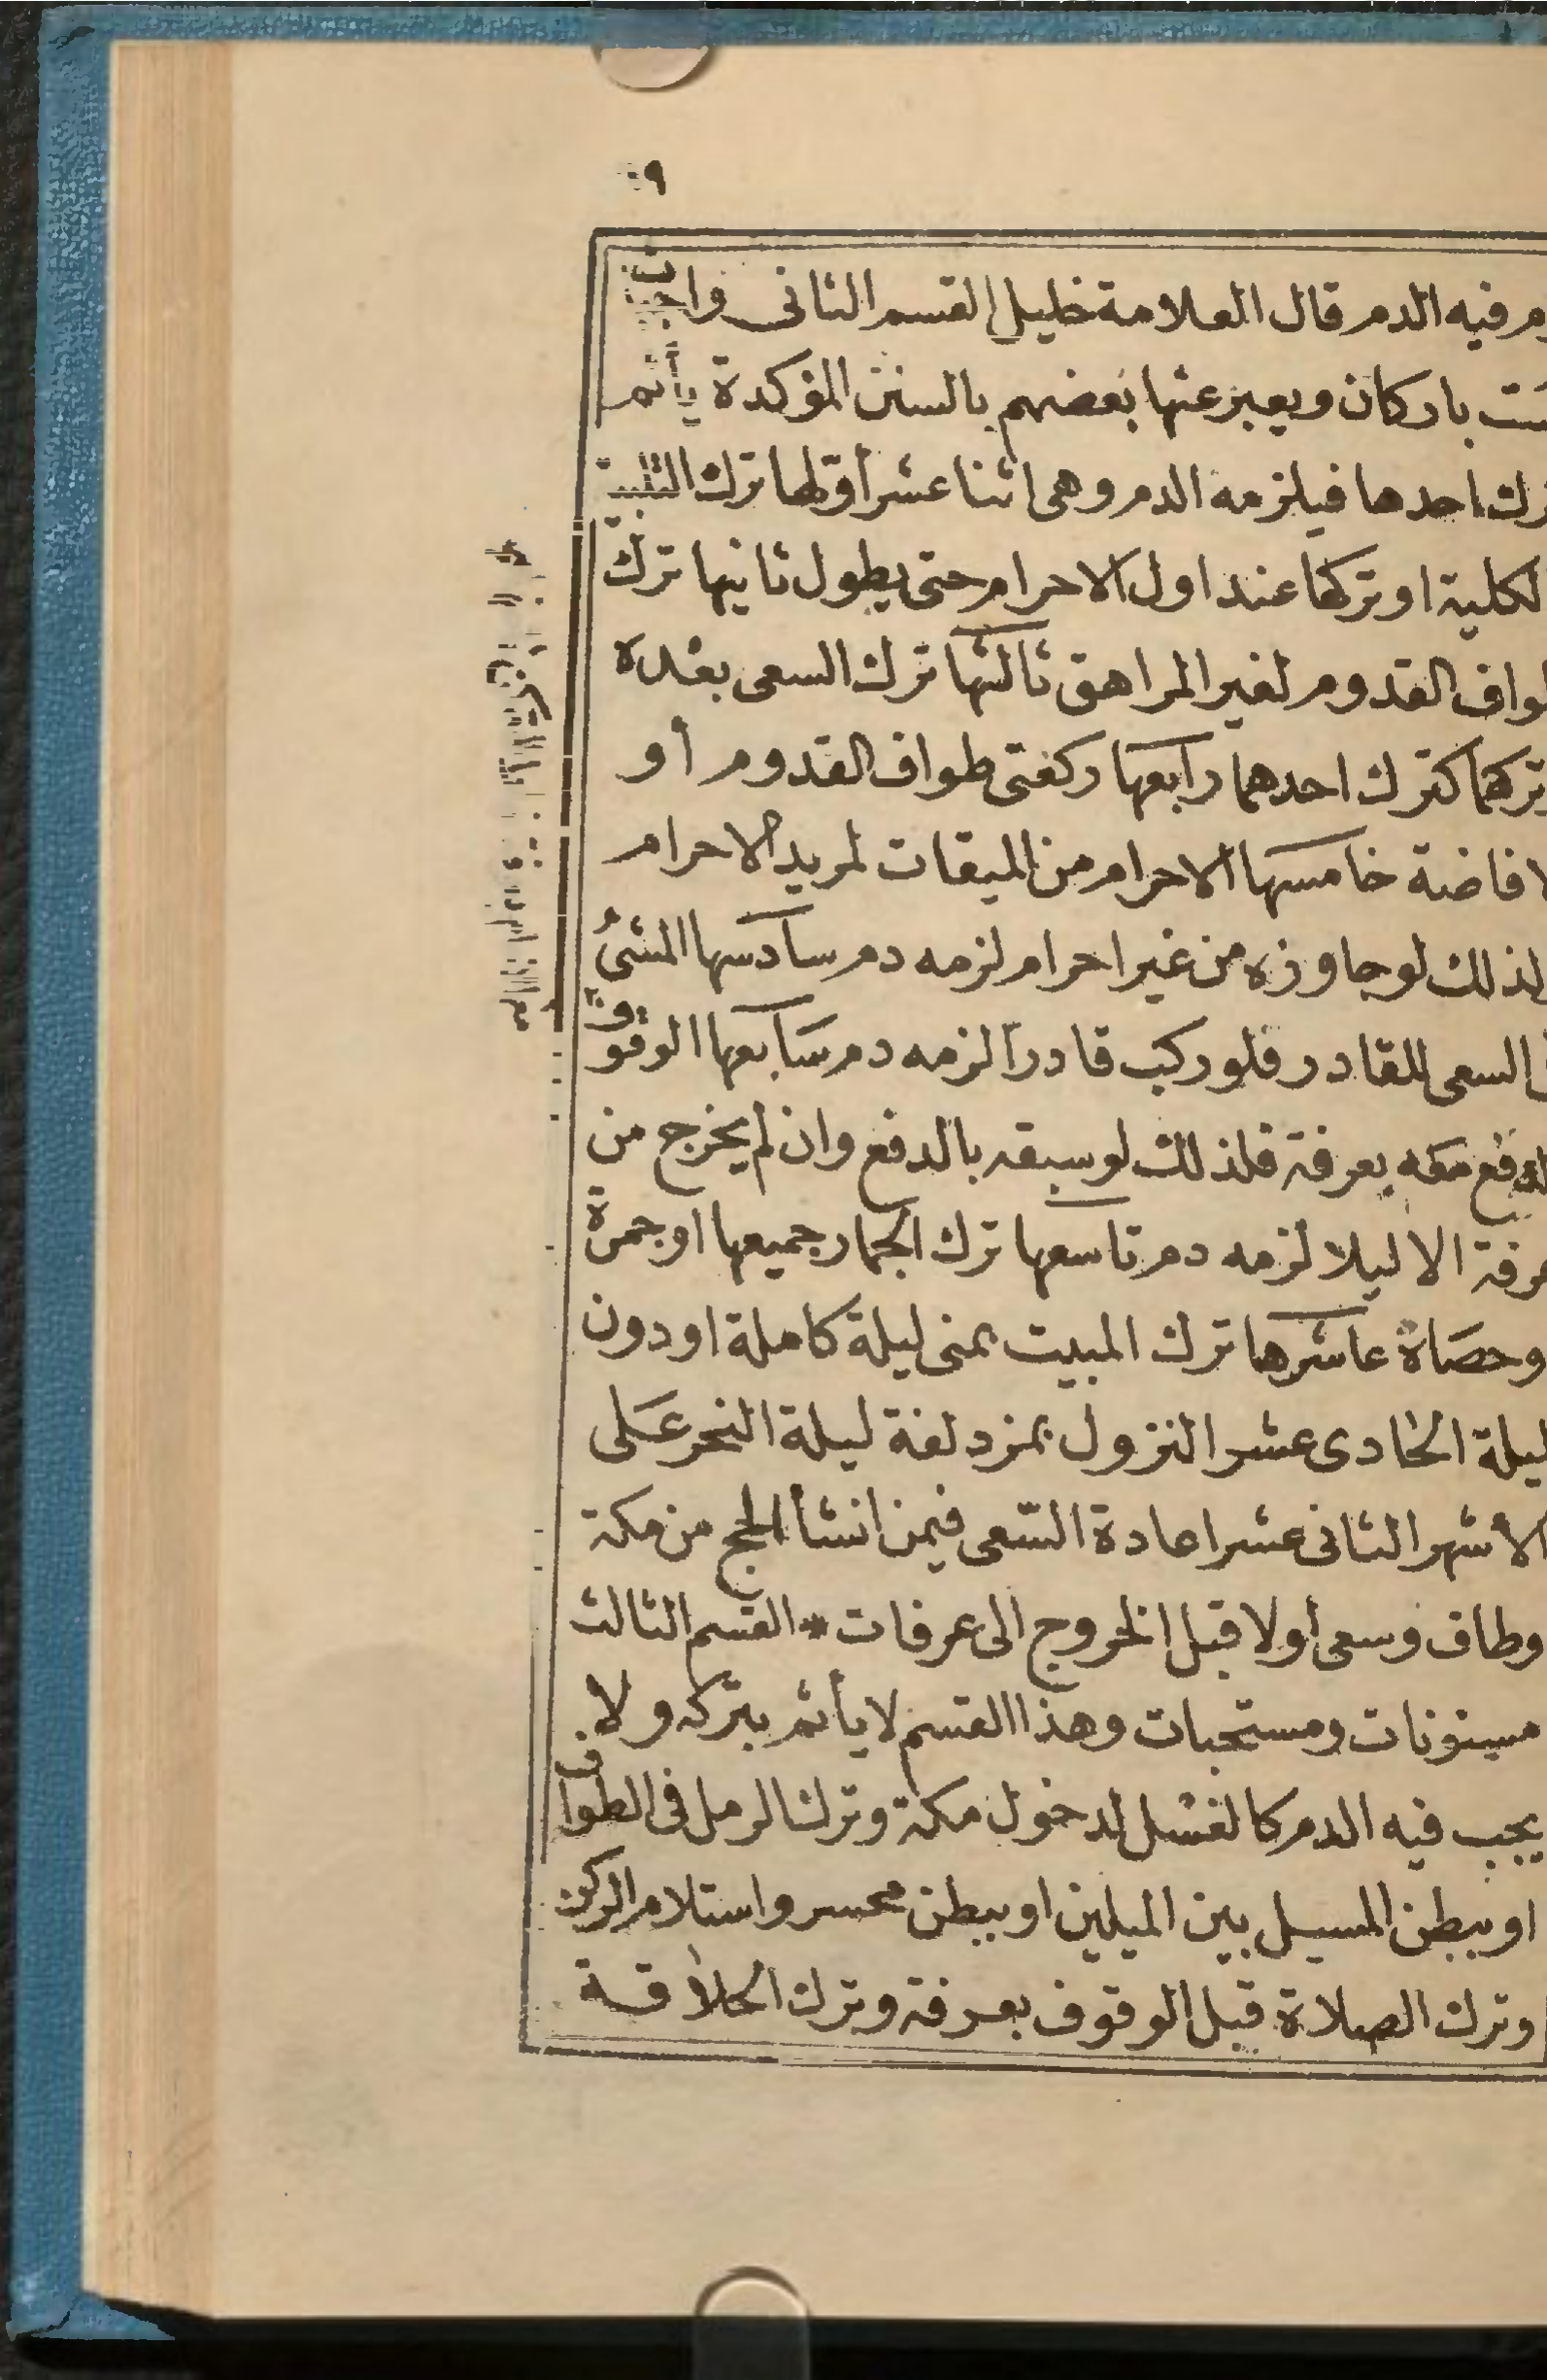 ٩
فيه الدم قال العلامة خليل القسم الثاني واجبات
باركان ويعبر عنها بعضهم بالسنن المؤكدة يأثم
احدها فيلزمه الدم وهى اثنا عشر أوّلها ترك التلبية
اوتركها عند اول الاحرام حتى يطول ثانيها ترك
القدوم لغير المراهق ثالثها ترك السعى بعده
كترك احدهما رابعها ركعتى طواف القدوم أو
خامسها الاحرام من الميقات لمريد الاحرام
لوجاوزه من غير احرام لزمه دم سادسها المشىُ
السعى للقادر فلو ركب قادراً لزمه دم سَابعها الوقوف
معه بعرفة فلذلك لوسبقه بالدفع وان لم يخرج من
الا ليلا لزمه دم تاسعها ترك الجمار جميعها اوجمرة
وحصَاة عاشرها ترك المبيت بمنى ليلة كاملة اودون
ليلة الحادى عشر النزول بمزدلفة ليلة النحر عَلى
الأشهر الثانى عشر اعادة السّعى فيمن انشأ الحج من مكة
وطاف وسعى أولا قبل الخروج الى عرفات * القسم الثالث
مسنونات ومستحبات وهذا القسم لا يأثم بتركه ولا
يجب فيه الدم كالغسل لدخول مكة وترك الرمل فى الطواف
اوببطن المسيل بين الميلين اوببطن محسر واستلام الركن
وترك الصلاة قبل الوقوف بعرفة وترك الحلاقة